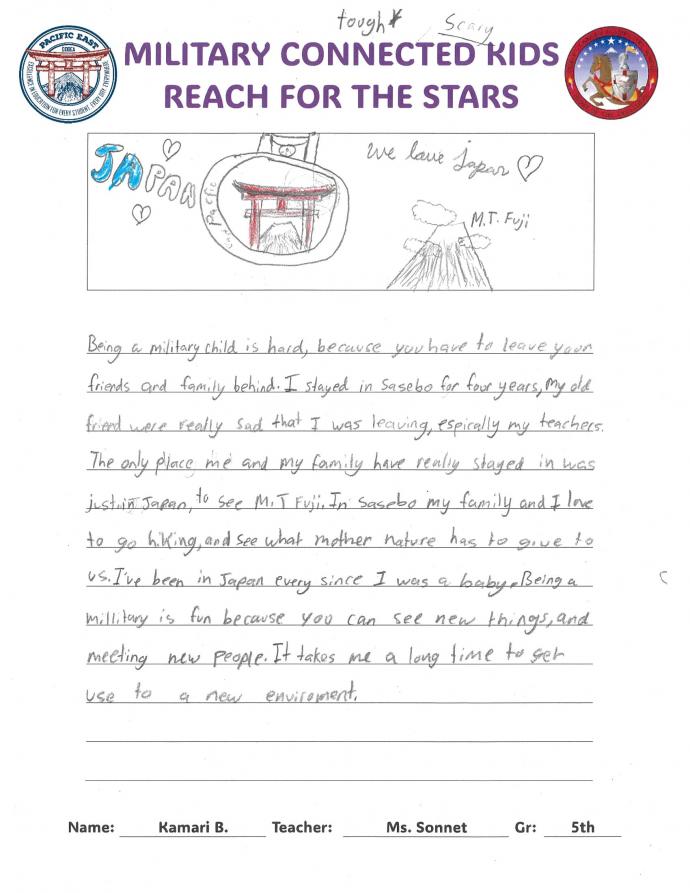 tough Scary
PACIFIC EAST
DODEA
EXCELLENCE IN EDUCATION FOR EVERY STUDENT, EVERY DAY, EVERYWHERE
MILITARY CONNECTED KIDS
REACH FOR THE STARS
JAPAN
Pacific
We love Japan
M.T. Fuji
Being a military child is hard, because you have to leave your
friends and family behind. I stayed in Sasebo for four years, My old
friend were really sad that I was leaving, espically my teachers.
The only place me and my family have really stayed in was
just in Japan, to see M.T Fuji. In Sasebo my family and I love
to go hiking, and see what mother nature has to give to
us. I've been in Japan every since I was a baby. Being a
millitary is fun because you can see new things, and
meeting new people. It takes me a long time to get
use to a new enviroment.
Name: Kamari B. Teacher: Ms. Sonnet Gr: 5th